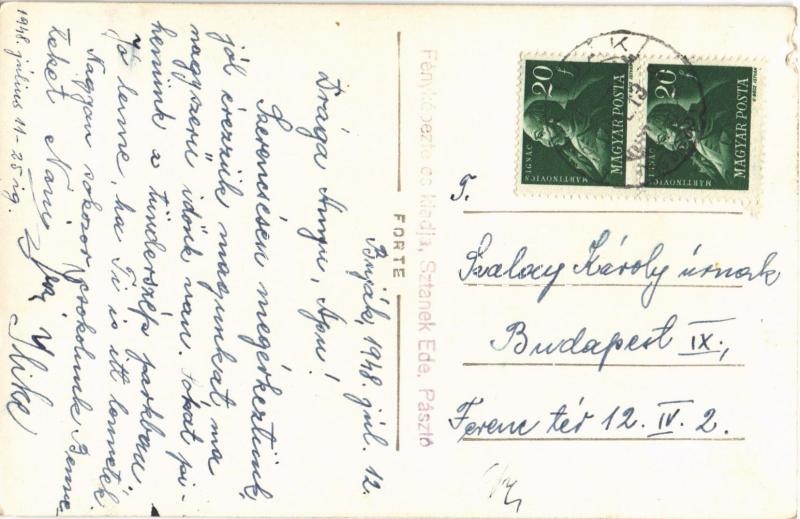 Buják, 1948. júl. 12.
Drága Anyu, Apu!
Szerencsésen megérkeztünk,
jól érezzük magunkat, ma
nagyszerű időnk van. Sokat pi-
henünk a tündérszép parkban.
Jó lenne, ha Ti is itt lennétek.
Nagyon sokszor csókolunk Benne-
teket Nani
Ilike
1948. július 11-25-ig.
FORTE
Fényképezte és kiadja, Sztanek Ede, Pásztó
20 f
MARTINOVICS IGNÁC
MAGYAR POSTA
20 f
MARTINOVICS IGNÁC
MAGYAR POSTA
T.
Szalay Károly úrnak
Budapest IX.,
Ferenc tér 12. IV. 2.